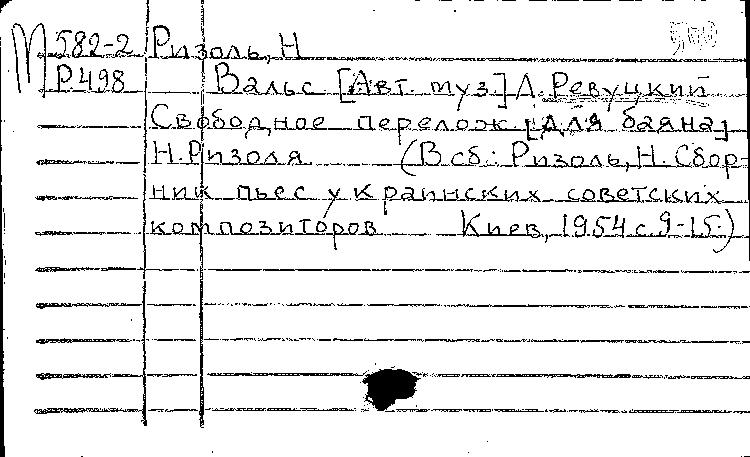 М 582-2 Ризоль, Н
Р498 Вальс [Авт. муз.] Л. Ревуцкий
Свободное перелож. [для баяна]
Н. Ризоля (В сб.: Ризоль, Н. Сбор-
ник пьес украинских советских
композиторов Киев, 1954 с. 9-15.)